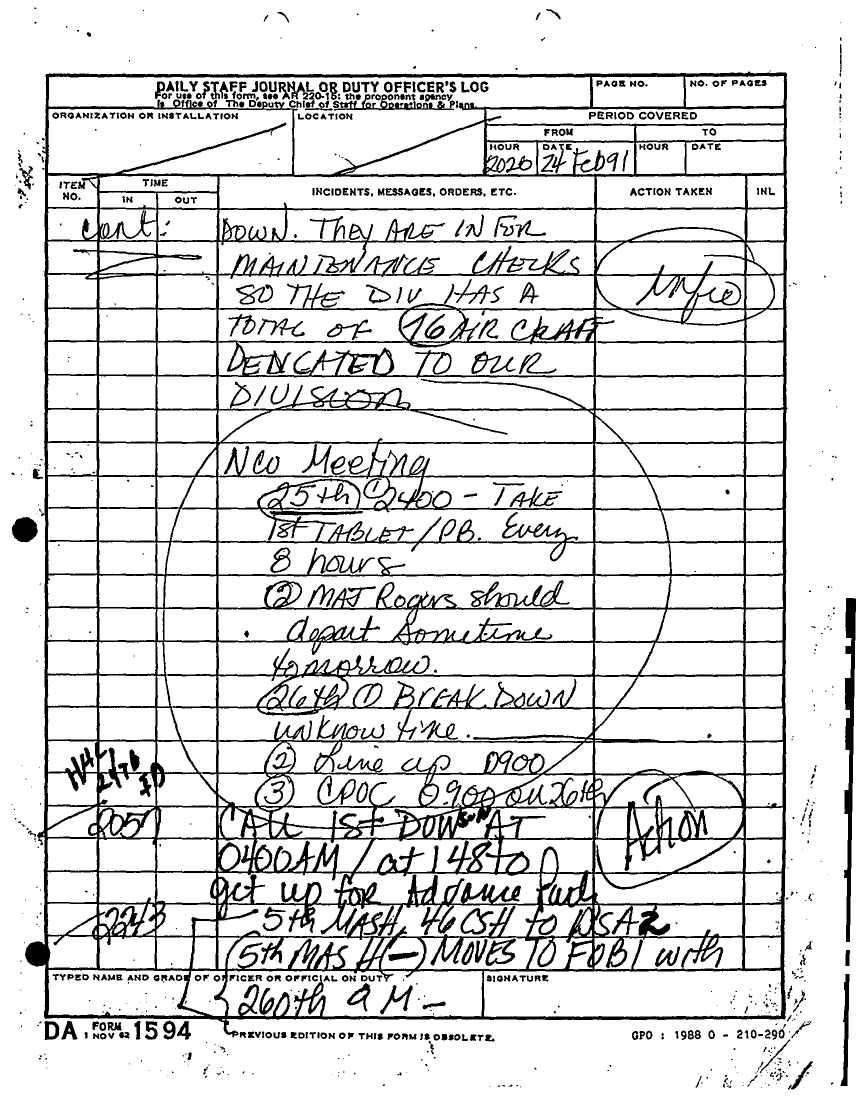 DAILY STAFF JOURNAL OR DUTY OFFICER'S LOG
For use of this form, see AR 220-15; the proponent agency
is Office of The Deputy Chief of Staff for Operations & Plans.
PAGE NO.
NO. OF PAGES
ORGANIZATION OR INSTALLATION
LOCATION
PERIOD COVERED
FROM
TO
HOUR
DATE
HOUR
DATE
2020
24 Feb 91
ITEM NO.
TIME
IN
OUT
INCIDENTS, MESSAGES, ORDERS, ETC.
ACTION TAKEN
INL
cont:
DOWN. THEY ARE IN FOR
MAINTENANCE CHECKS
SO THE DIV HAS A
TOTAL OF 16 AIR CRAFT
DEDICATED TO OUR
DIVISION
info
NCO Meeting
25th ① 2400 - TAKE
1st TABLET / PB. Every
8 hours
② MAJ Rogers should
depart sometime
tomorrow.
26th ① BREAK DOWN
unknow time.
② Line up 0900
③ CPOC 0900 on 26th
24th ID
2057
CALL 1st DOWN AT
0400AM / at 148 to
get up for Advance
Action
2243
5th MASH, 46 CSH to DSA2
(5th MASH (-) MOVES TO FOB1 with
260th QM -
TYPED NAME AND GRADE OF OFFICER OR OFFICIAL ON DUTY
SIGNATURE
DA FORM 1594
1 NOV 62
PREVIOUS EDITION OF THIS FORM IS OBSOLETE.
GPO : 1988 O - 210-290